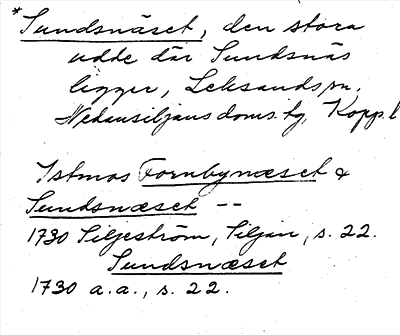 *Sundsnäset, den stora
udde där Sundsnäs
ligger, Leksands sn.
Nedansiljans doms.tg, Kopp.l
Istmos Fornbynæset &
Sundsnæset --
1730 Siljeström, Siljan, s. 22.
Sundsnæset
1730 a.a., s. 22.